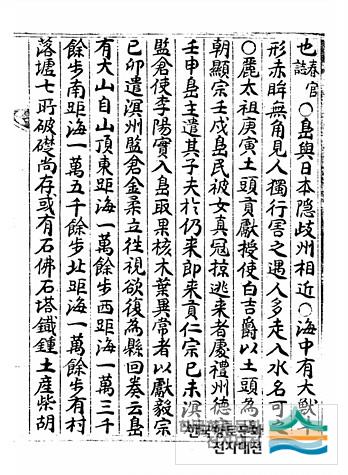 也春官誌○島與日本隱歧州相近○海中有大獸牛
形赤眸無角見人獨行害之遇人多走入水名可之
○麗太祖庚寅土頭貢獻授使白吉爵以土頭為正
朝顯宗壬戌島民被女真冠掠逃來者處禮州德宗
壬申島主遣其子夫於仍來即來貢仁宗己未溟州
監倉使李陽實入島取果核木葉異常者以獻毅宗
己卯遣溟州監倉金柔立往視欲復為縣回奏云島
有大山自山頂東距海一萬餘步西距海一萬三千
餘步南距海一萬五千餘步北距海一萬餘步有村
落墟七所破礎尚存或有石佛石塔鐵鍾土産柴胡
한국향토문화
전자대전